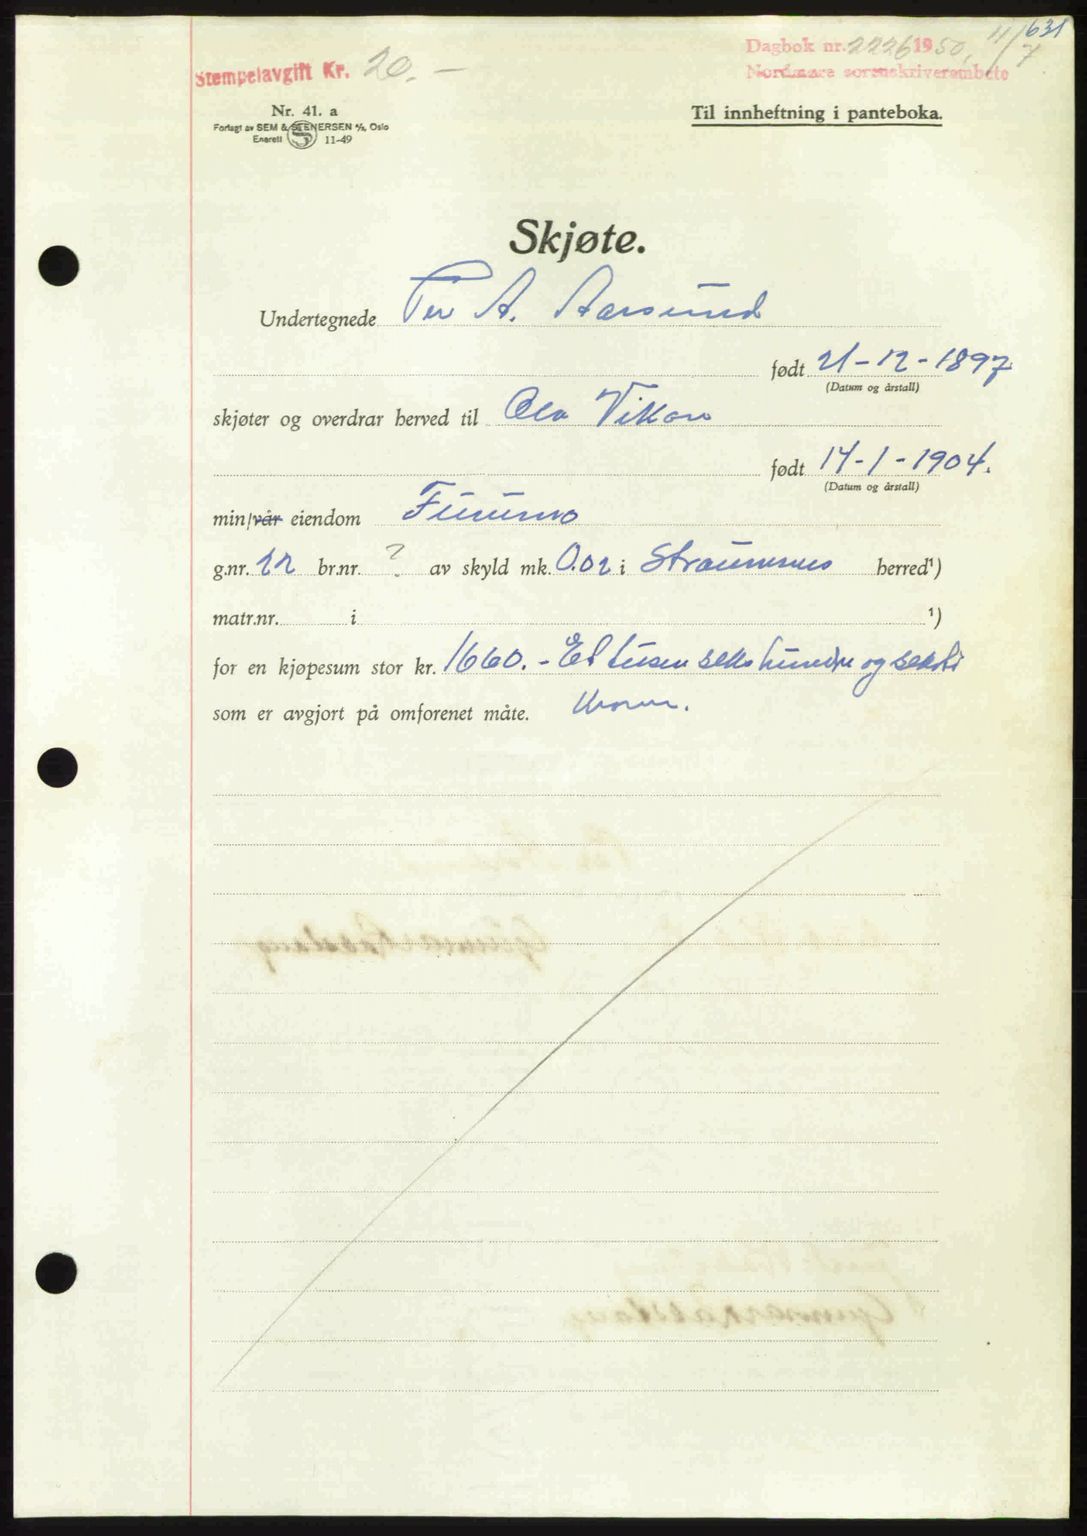 631
Dagbok nr. 2226 1950. 11/7
Nordmøre sorenskriverembete
Stempelavgift Kr. 20.—
Nr. 41. a
Forlagt av SEM & STENERSEN A/S, Oslo
Enerett S 11-49
Til innheftning i panteboka.
Skjøte.
Undertegnede Per A. Aarsund
født 21-12-1897
(Datum og årstall)
skjøter og overdrar herved til Ola Vikan
født 14-1-1904.
(Datum og årstall)
min/vår eiendom Furumo
g.nr. 22 br.nr. ? av skyld mk. 0.02 i Straumsnes herred¹)
matr.nr. i ¹)
for en kjøpesum stor kr. 1660.- Et tusen seks hundre og seksti
som er avgjort på omforenet måte. Kroner.